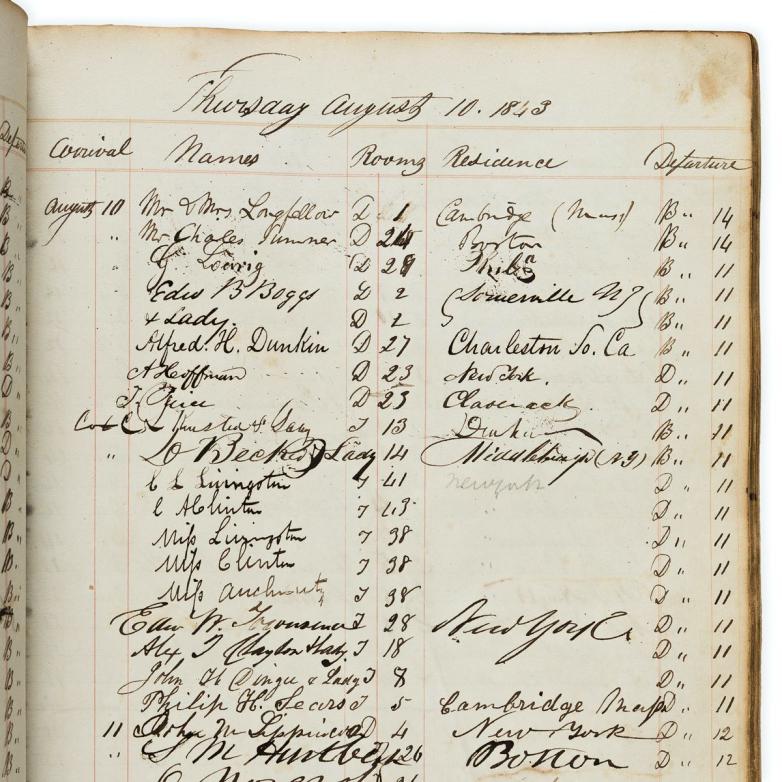 Thursday August 10. 1843
Arrival Names Rooms Residence Departure
August 10 Mr & Mrs Longfellow D 1 Cambridge (Mass) B " 14
" Mr Charles Sumner D Boston B " 14
D B " 11
Edw B Boggs D 2 Somerville NJ B " 11
& Lady. D B " 11
Alfred. H. Dunkin D 27 Charleston So. Ca B " 11
A Hoffman D 23 New York. D " 11
Price D 23 Claverack D " 11
& Lady T 13 B " 11
" D Becker Lady 14 Middleburgh (NY) B " 11
C L Livingston T 41 New york D " 11
C A Clinton T " D " 11
Miss Livingston T 38 D " 11
Miss Clinton T 38 " D " 11
Miss Auchmuty T 38 D " 11
Edw W. Townsend T 28 New York D " 11
Alex T Clayton & Lady T 18 D " 11
John H Dingee & Lady T 8 D " 11
Philip H. Sears T 5 Cambridge Mass D " 11
11 John M Lippincott D 4 New York D " 12
" S M Hurlbert 26 Boston D " 12